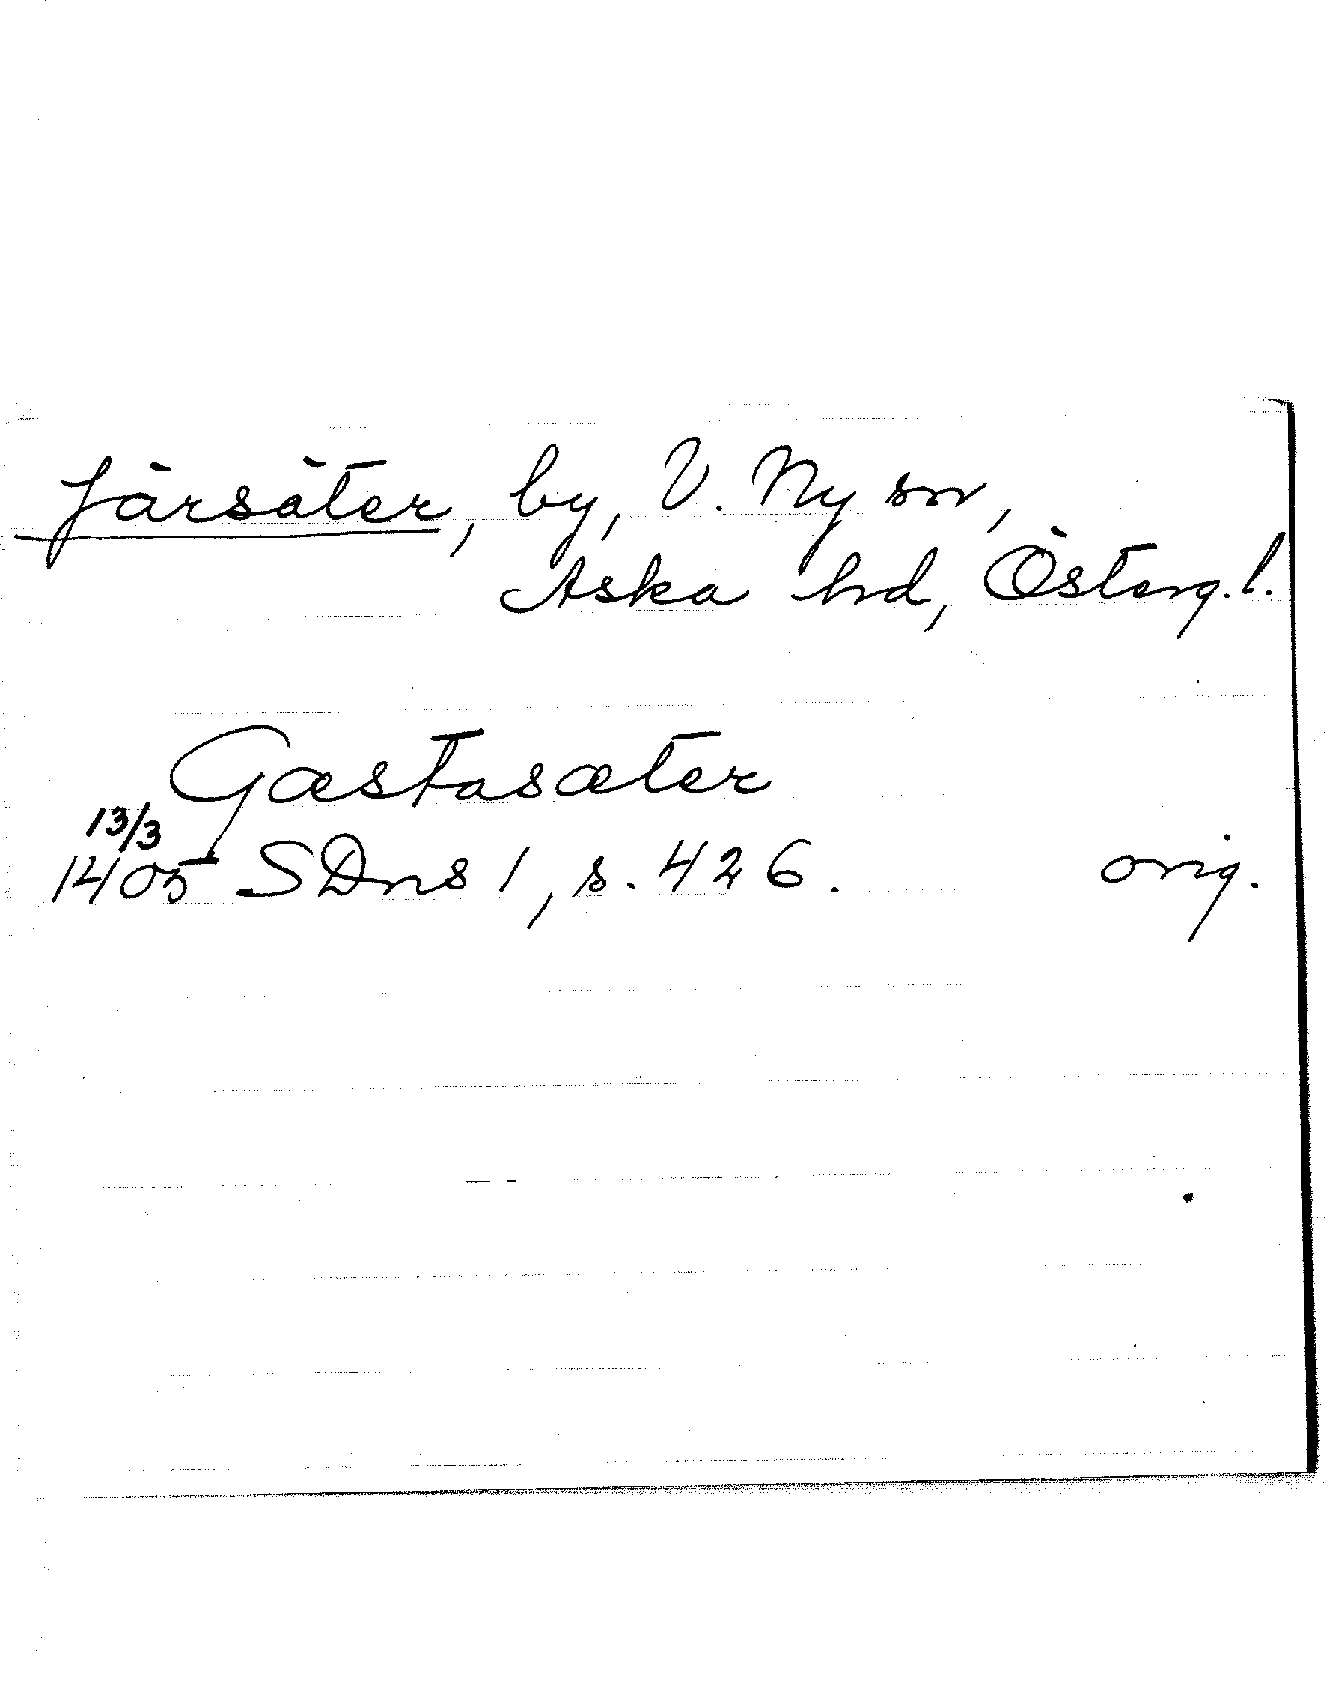 Järsäter, by, V. Ny sn,
Aska hd, Österg. l.
Gæstasæter
13/3
1405 SDns 1, s. 426. orig.